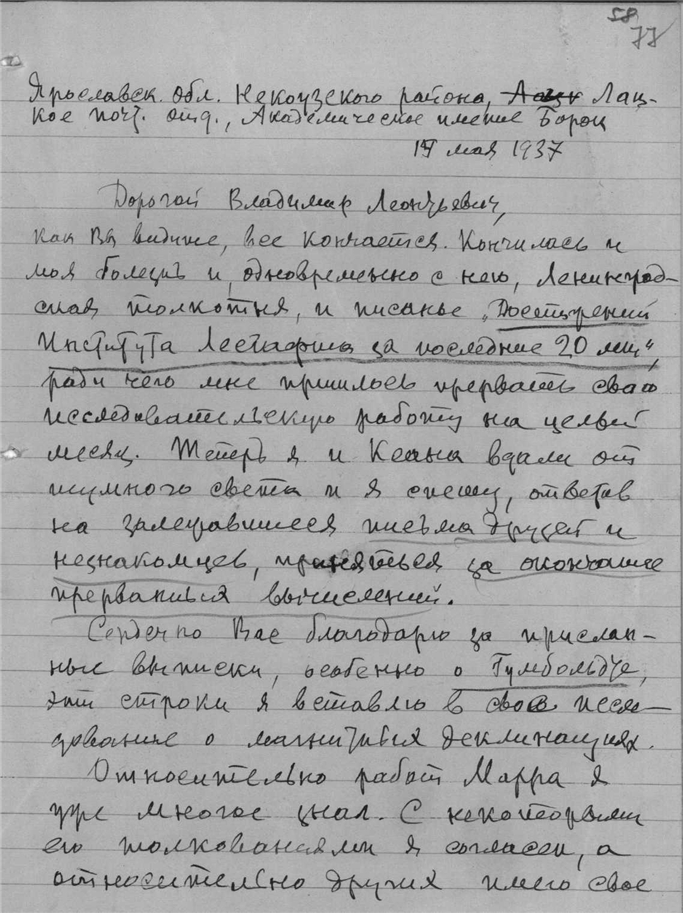 58
77
Ярославск. обл. Некоузского района, Лац-
кое почт. отд., Академическое имение Борок
мая 1937
Дорогой Владимир Леонтьевич,
как Вы видите, все кончается. Кончилась и
моя болезнь и, одновременно с нею, Ленинград-
ская толкотня, и писанье „Достижений
Института Лесгафта за последние 20 лет“,
ради чего мне пришлось прервать свою
исследовательскую работу на целый
месяц. Теперь я и Ксана вдали от
шумного света и я спешу, ответив
на залежавшиеся письма друзей и
незнакомцев, приняться за окончание
прерванных вычислений.
Сердечно Вас благодарю за прислан-
ные выписки, особенно о Гумбольдте,
эти строки я вставлю в свое иссле-
дование о магнитных деклинациях.
Относительно работ Марра я
уже многое знал. С некоторыми
его толкованиями я согласен, а
относительно других имею свое